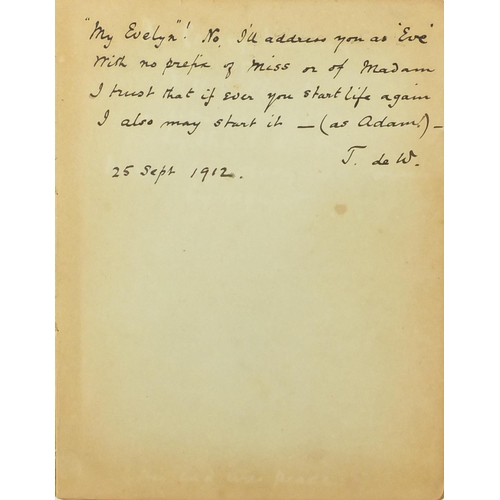 "My Evelyn"! No, I'll address you as 'Eve'
With no prefix of Miss or of Madam
I trust that if ever you start life again
I also may start it — (as Adam!) —
T. de W.
25 Sept 1912.